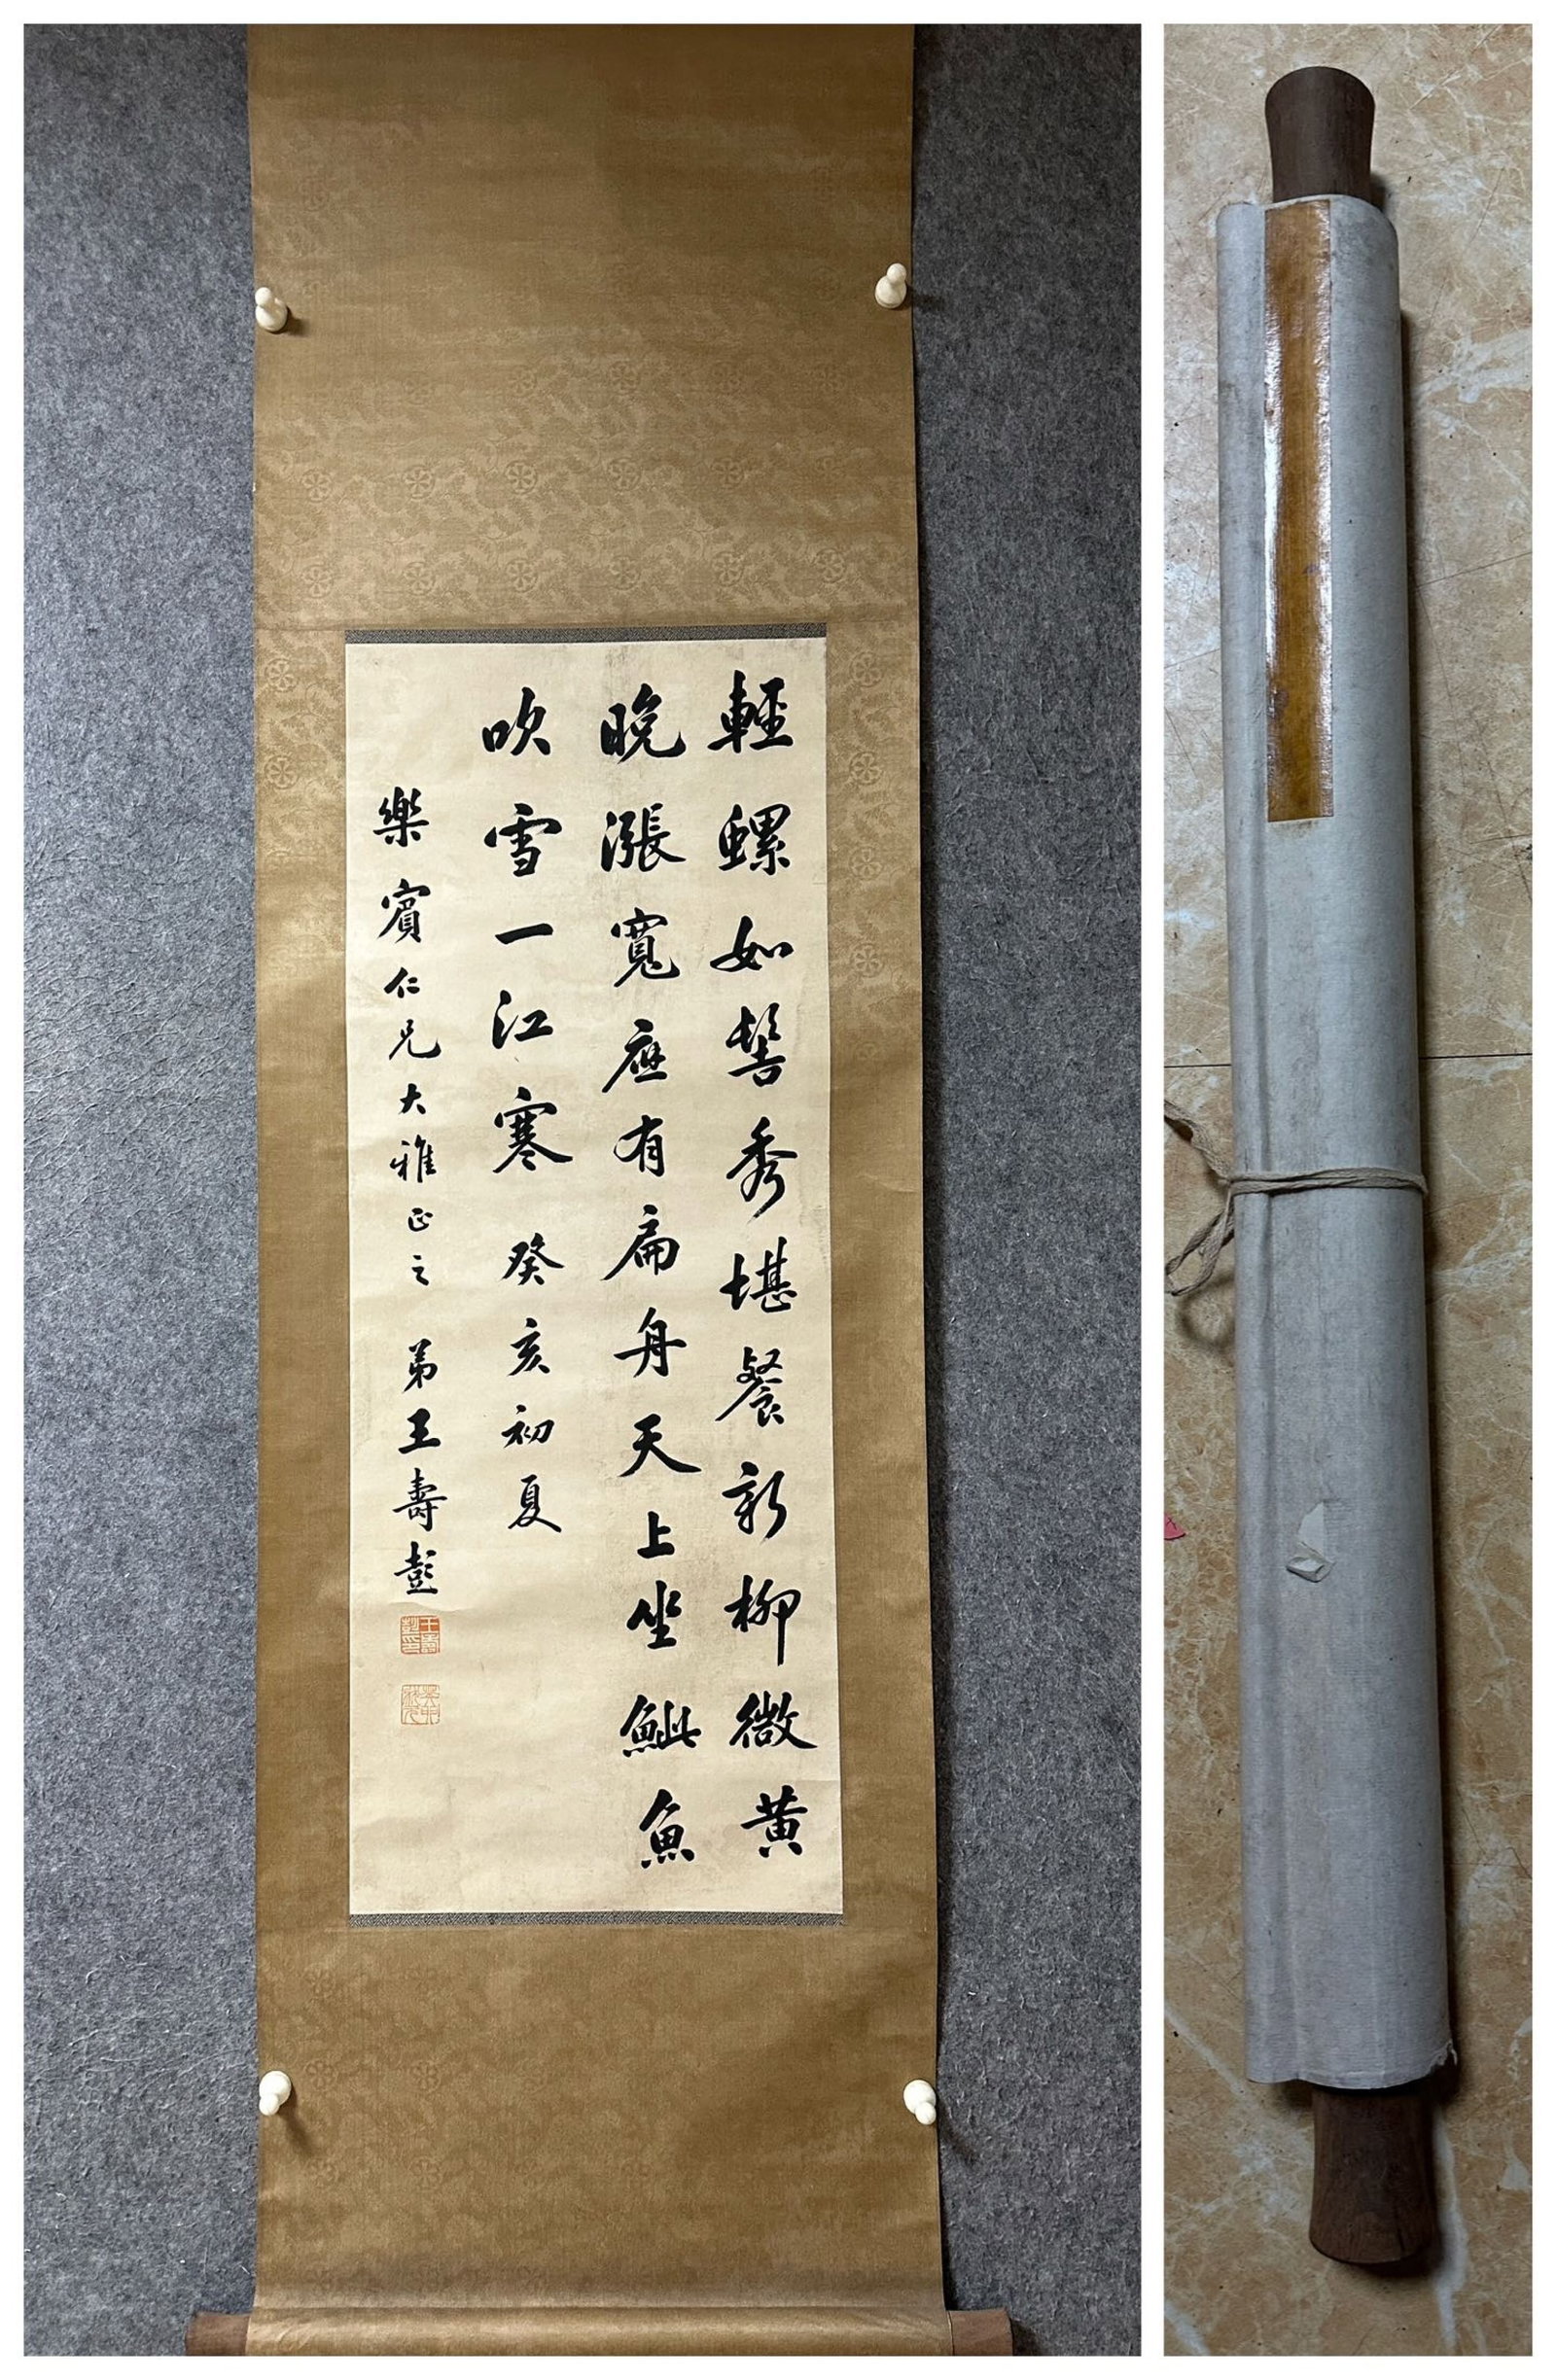 輕螺如髻秀堪餐新柳微黄
晚漲寬應有扁舟天上坐鮆魚
吹雪一江寒 癸亥初夏
樂賓仁兄大雅正之 弟王壽彭
王壽彭印